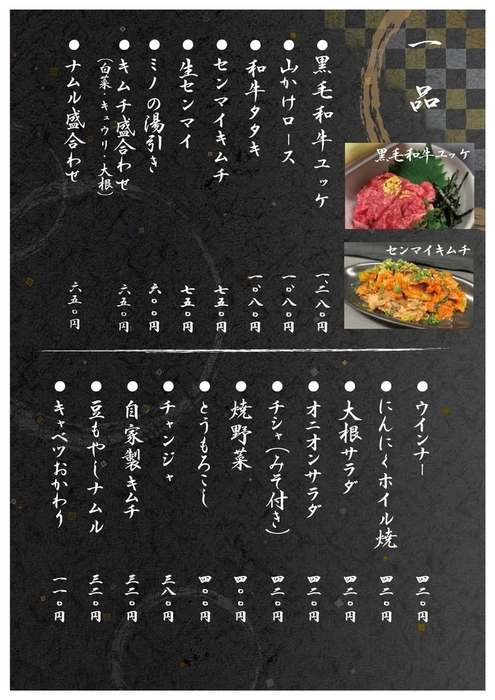 一品
黒毛和牛ユッケ
センマイキムチ
●黒毛和牛ユッケ 一、二八〇円
●山かけロース 一、〇八〇円
●和牛タタキ 一、〇八〇円
●センマイキムチ 七五〇円
●生センマイ 七五〇円
●ミノの湯引き 六〇〇円
●キムチ盛合わせ 六五〇円
（白菜・キュウリ・大根）
●ナムル盛合わせ 六五〇円
●ウインナー 四二〇円
●にんにくホイル焼 四二〇円
●大根サラダ 四二〇円
●オニオンサラダ 四二〇円
●チシャ（みそ付き） 四二〇円
●焼野菜 四〇〇円
●とうもろこし 四〇〇円
●チャンジャ 三八〇円
●自家製キムチ 三二〇円
●豆もやしナムル 三二〇円
●キャベツおかわり 一一〇円